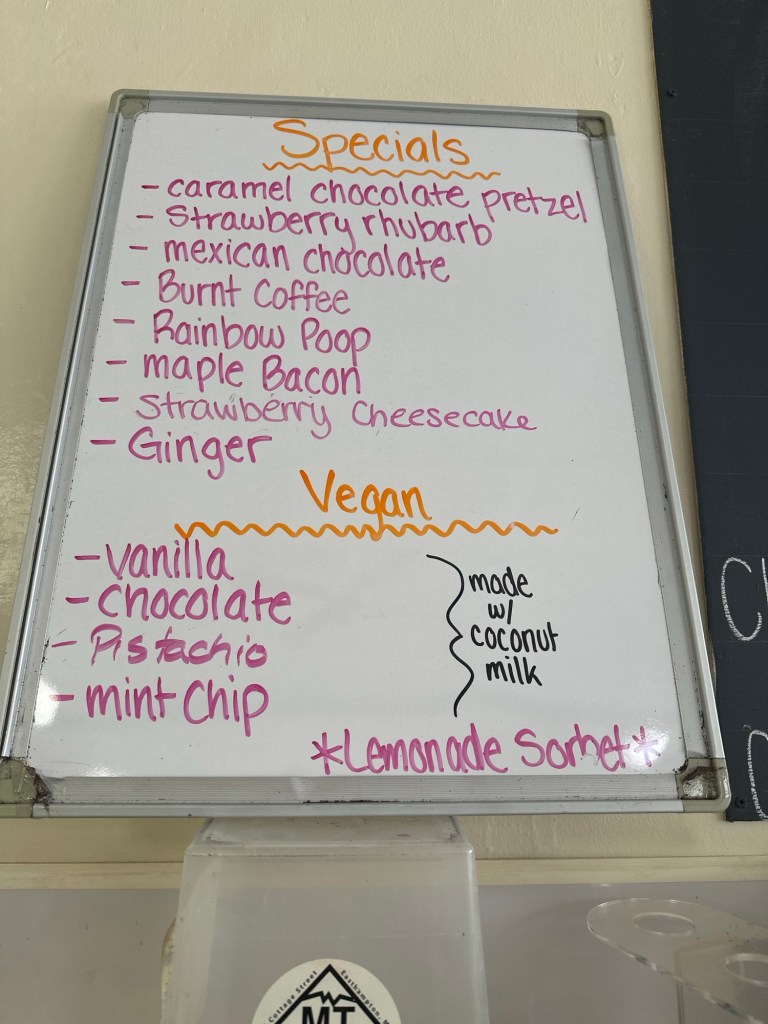 Specials
- caramel chocolate pretzel
- Strawberry rhubarb
- mexican chocolate
- Burnt Coffee
- Rainbow Poop
- maple Bacon
- Strawberry Cheesecake
- Ginger
Vegan
- vanilla
- Chocolate
- Pistachio
- mint Chip
made
w/
coconut
milk
*Lemonade Sorbet*
Cottage Street
Easthampton,
MT